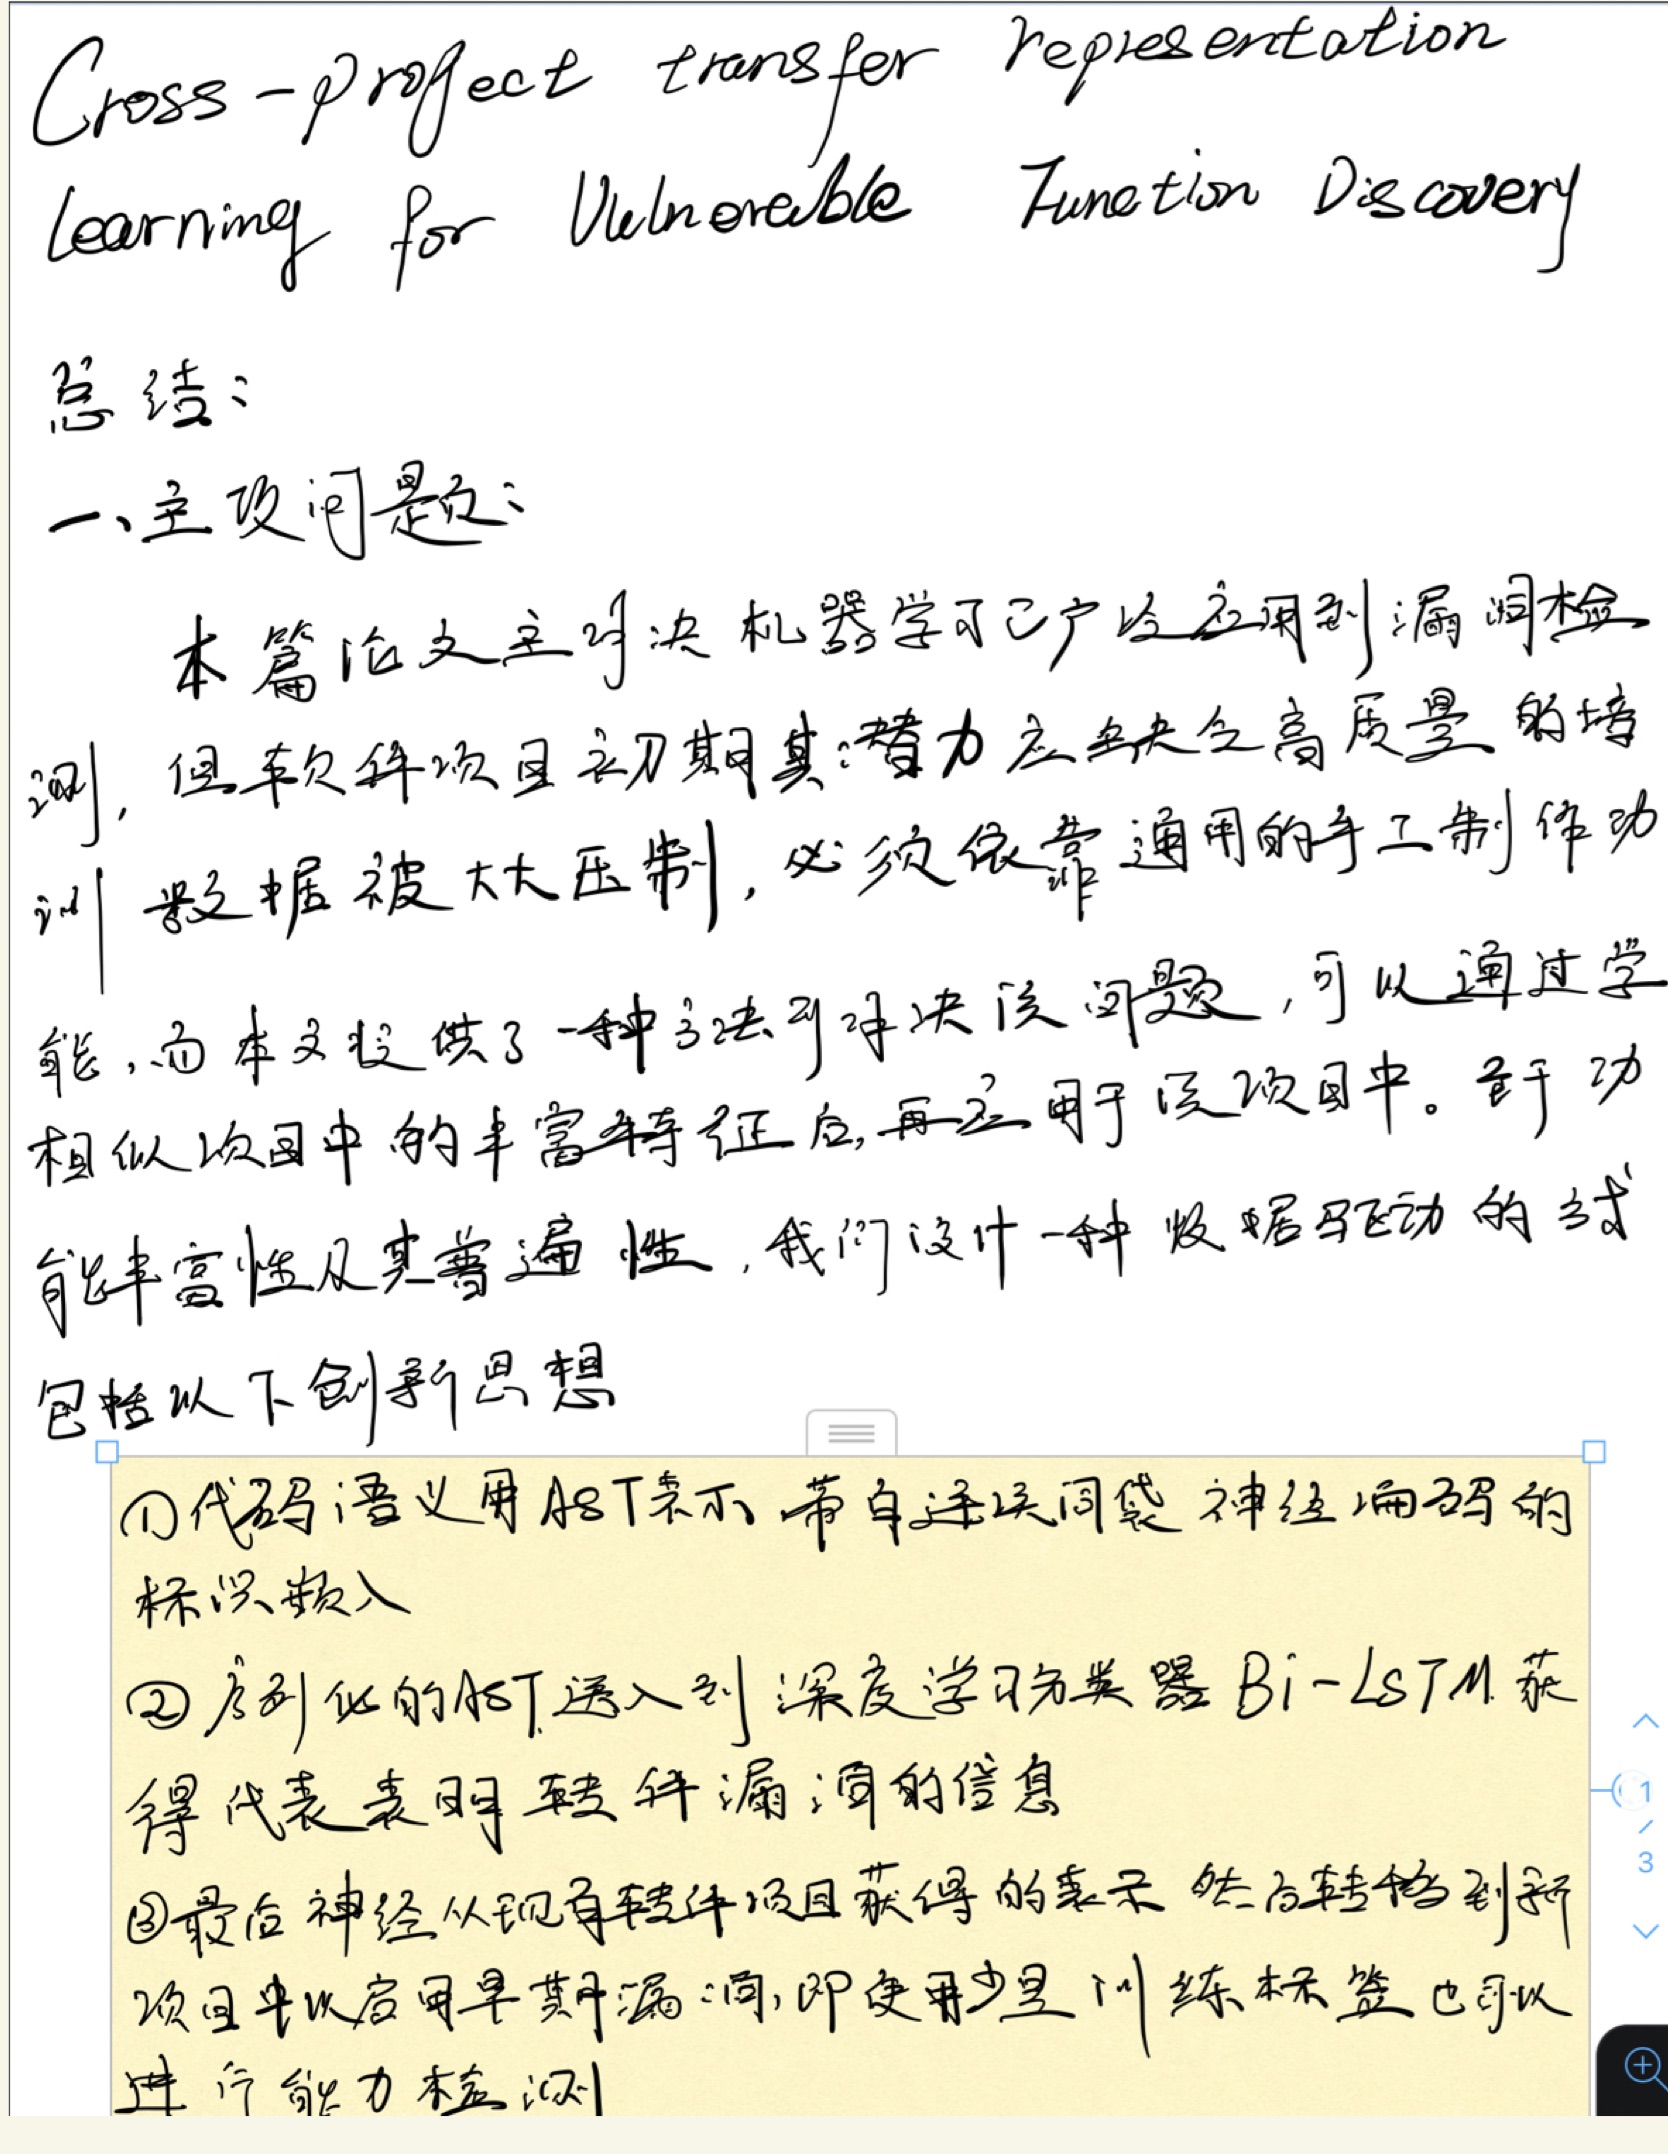 Cross-project transfer representation
learning for Vulnerable Function Discovery
总结：
一、主攻问题：
本篇论文主解决机器学习已广泛应用到漏洞检
测，但软件项目初期其潜力应缺乏高质量的培
训数据被大大压制，必须依靠通用的手工制作功
能，而本文提供了一种方法可解决该问题，可以通过学
相似项目中的丰富特征后，再应用于该项目中。至于功
能丰富性及其普遍性，我们设计一种数据驱动的方式
包括以下创新思想
①代码语义用AST表示 带自连续词袋神经编码的
标识嵌入
②序列化的AST送入到深度学习分类器Bi-LSTM获
得代表表明软件漏洞的信息
③最后神经从现有软件项目获得的表示 然后转移到新
项目中以启用早期漏洞，即使用少量训练标签也可以
进行能力检测
1
/
3